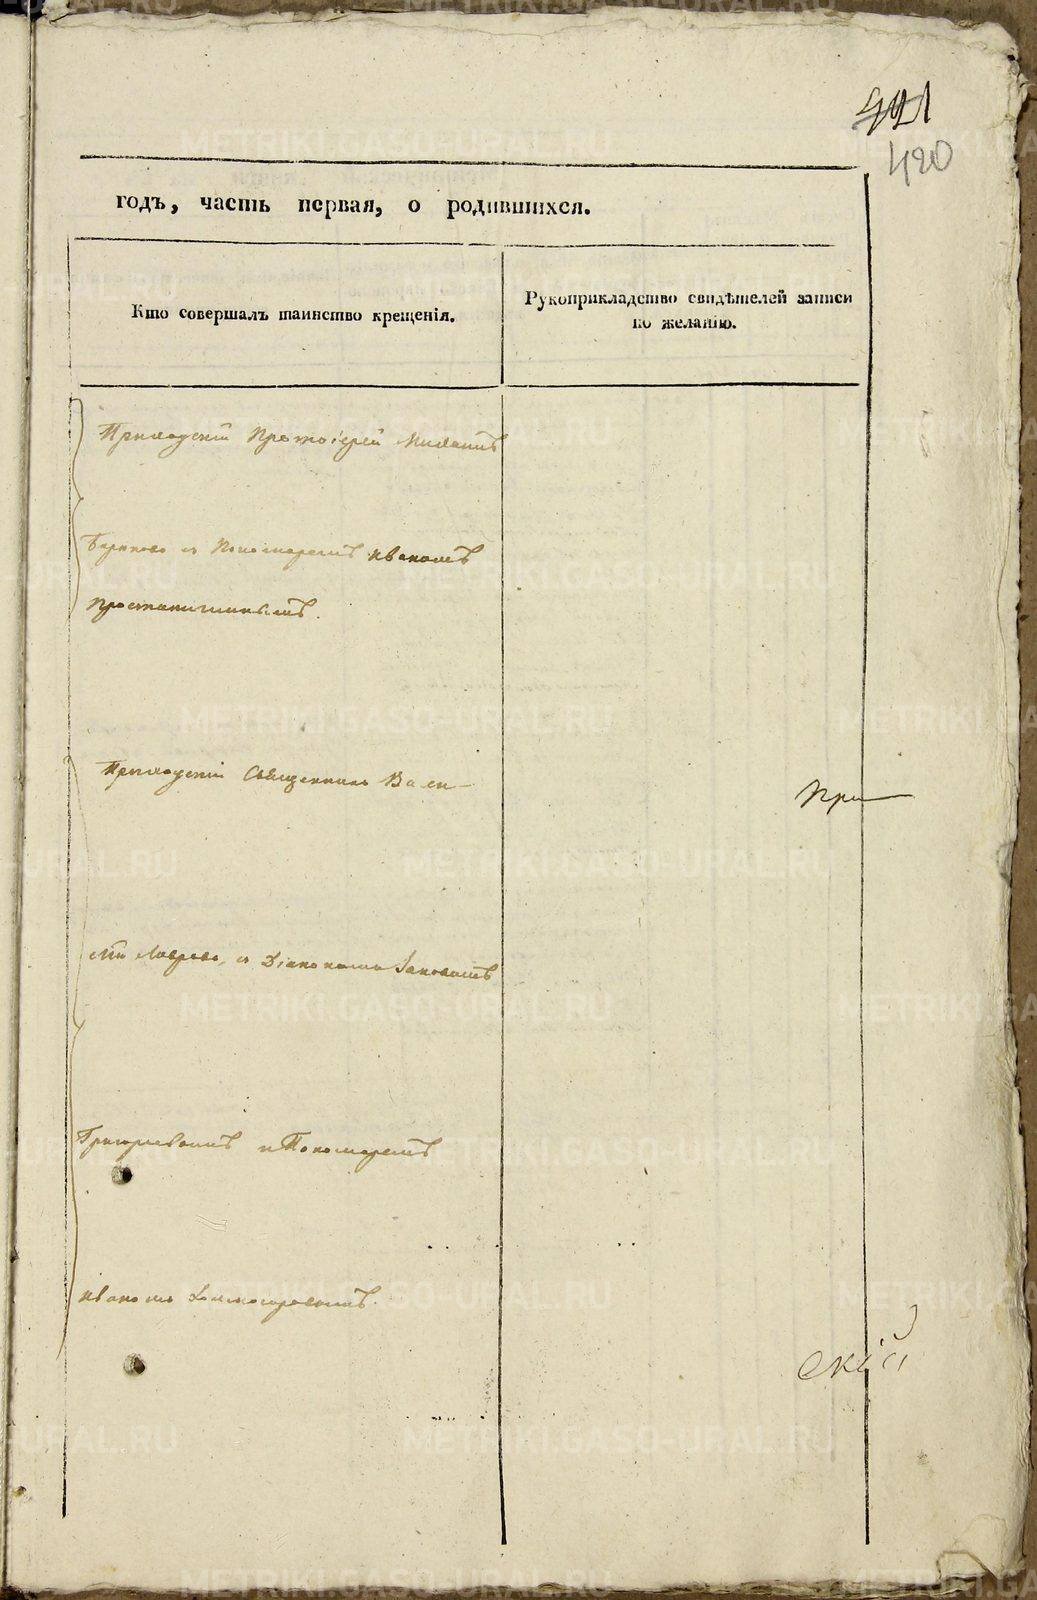 421
420
годъ, часть первая, о родившихся.
Кто совершалъ таинство крещенія.
Рукоприкладство свидѣтелей записи
по желанію.
Приходскій Протоіерей Михаилъ
съ Пономаремъ Иваномъ
Приходскій Священникъ Васи-
При-
лій Лавровъ, съ Діакономъ Іаковомъ
Григорьевымъ и Пономаремъ
Иваномъ
скій
METRIKI.GASO-URAL.RU